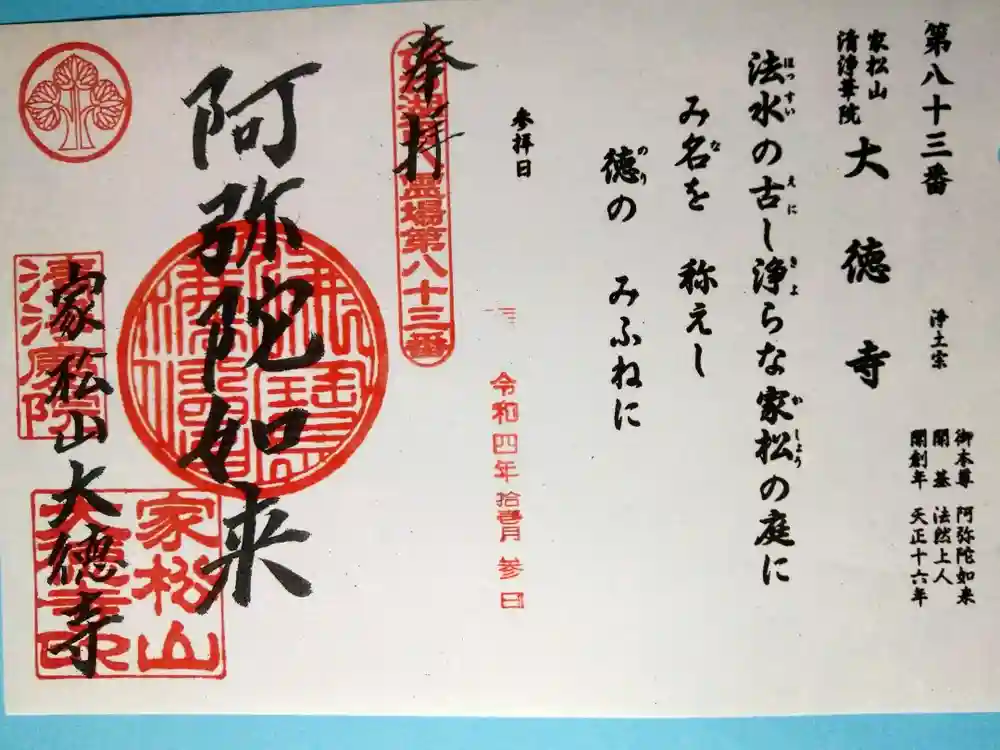 第八十三番
浄土宗
御本尊 阿弥陀如来
開基 法然上人
開創年 天正十六年
家松山
清浄華院
大徳寺
法水の古し浄らな家松の庭に
ほっすい えに きよ かしょう
み名を 称えし
な
徳の みふねに
のり
参拝日
令和四年拾壱月参日
奉拝
霊場第八十三番
阿弥陀如来
家松山大徳寺
家松山